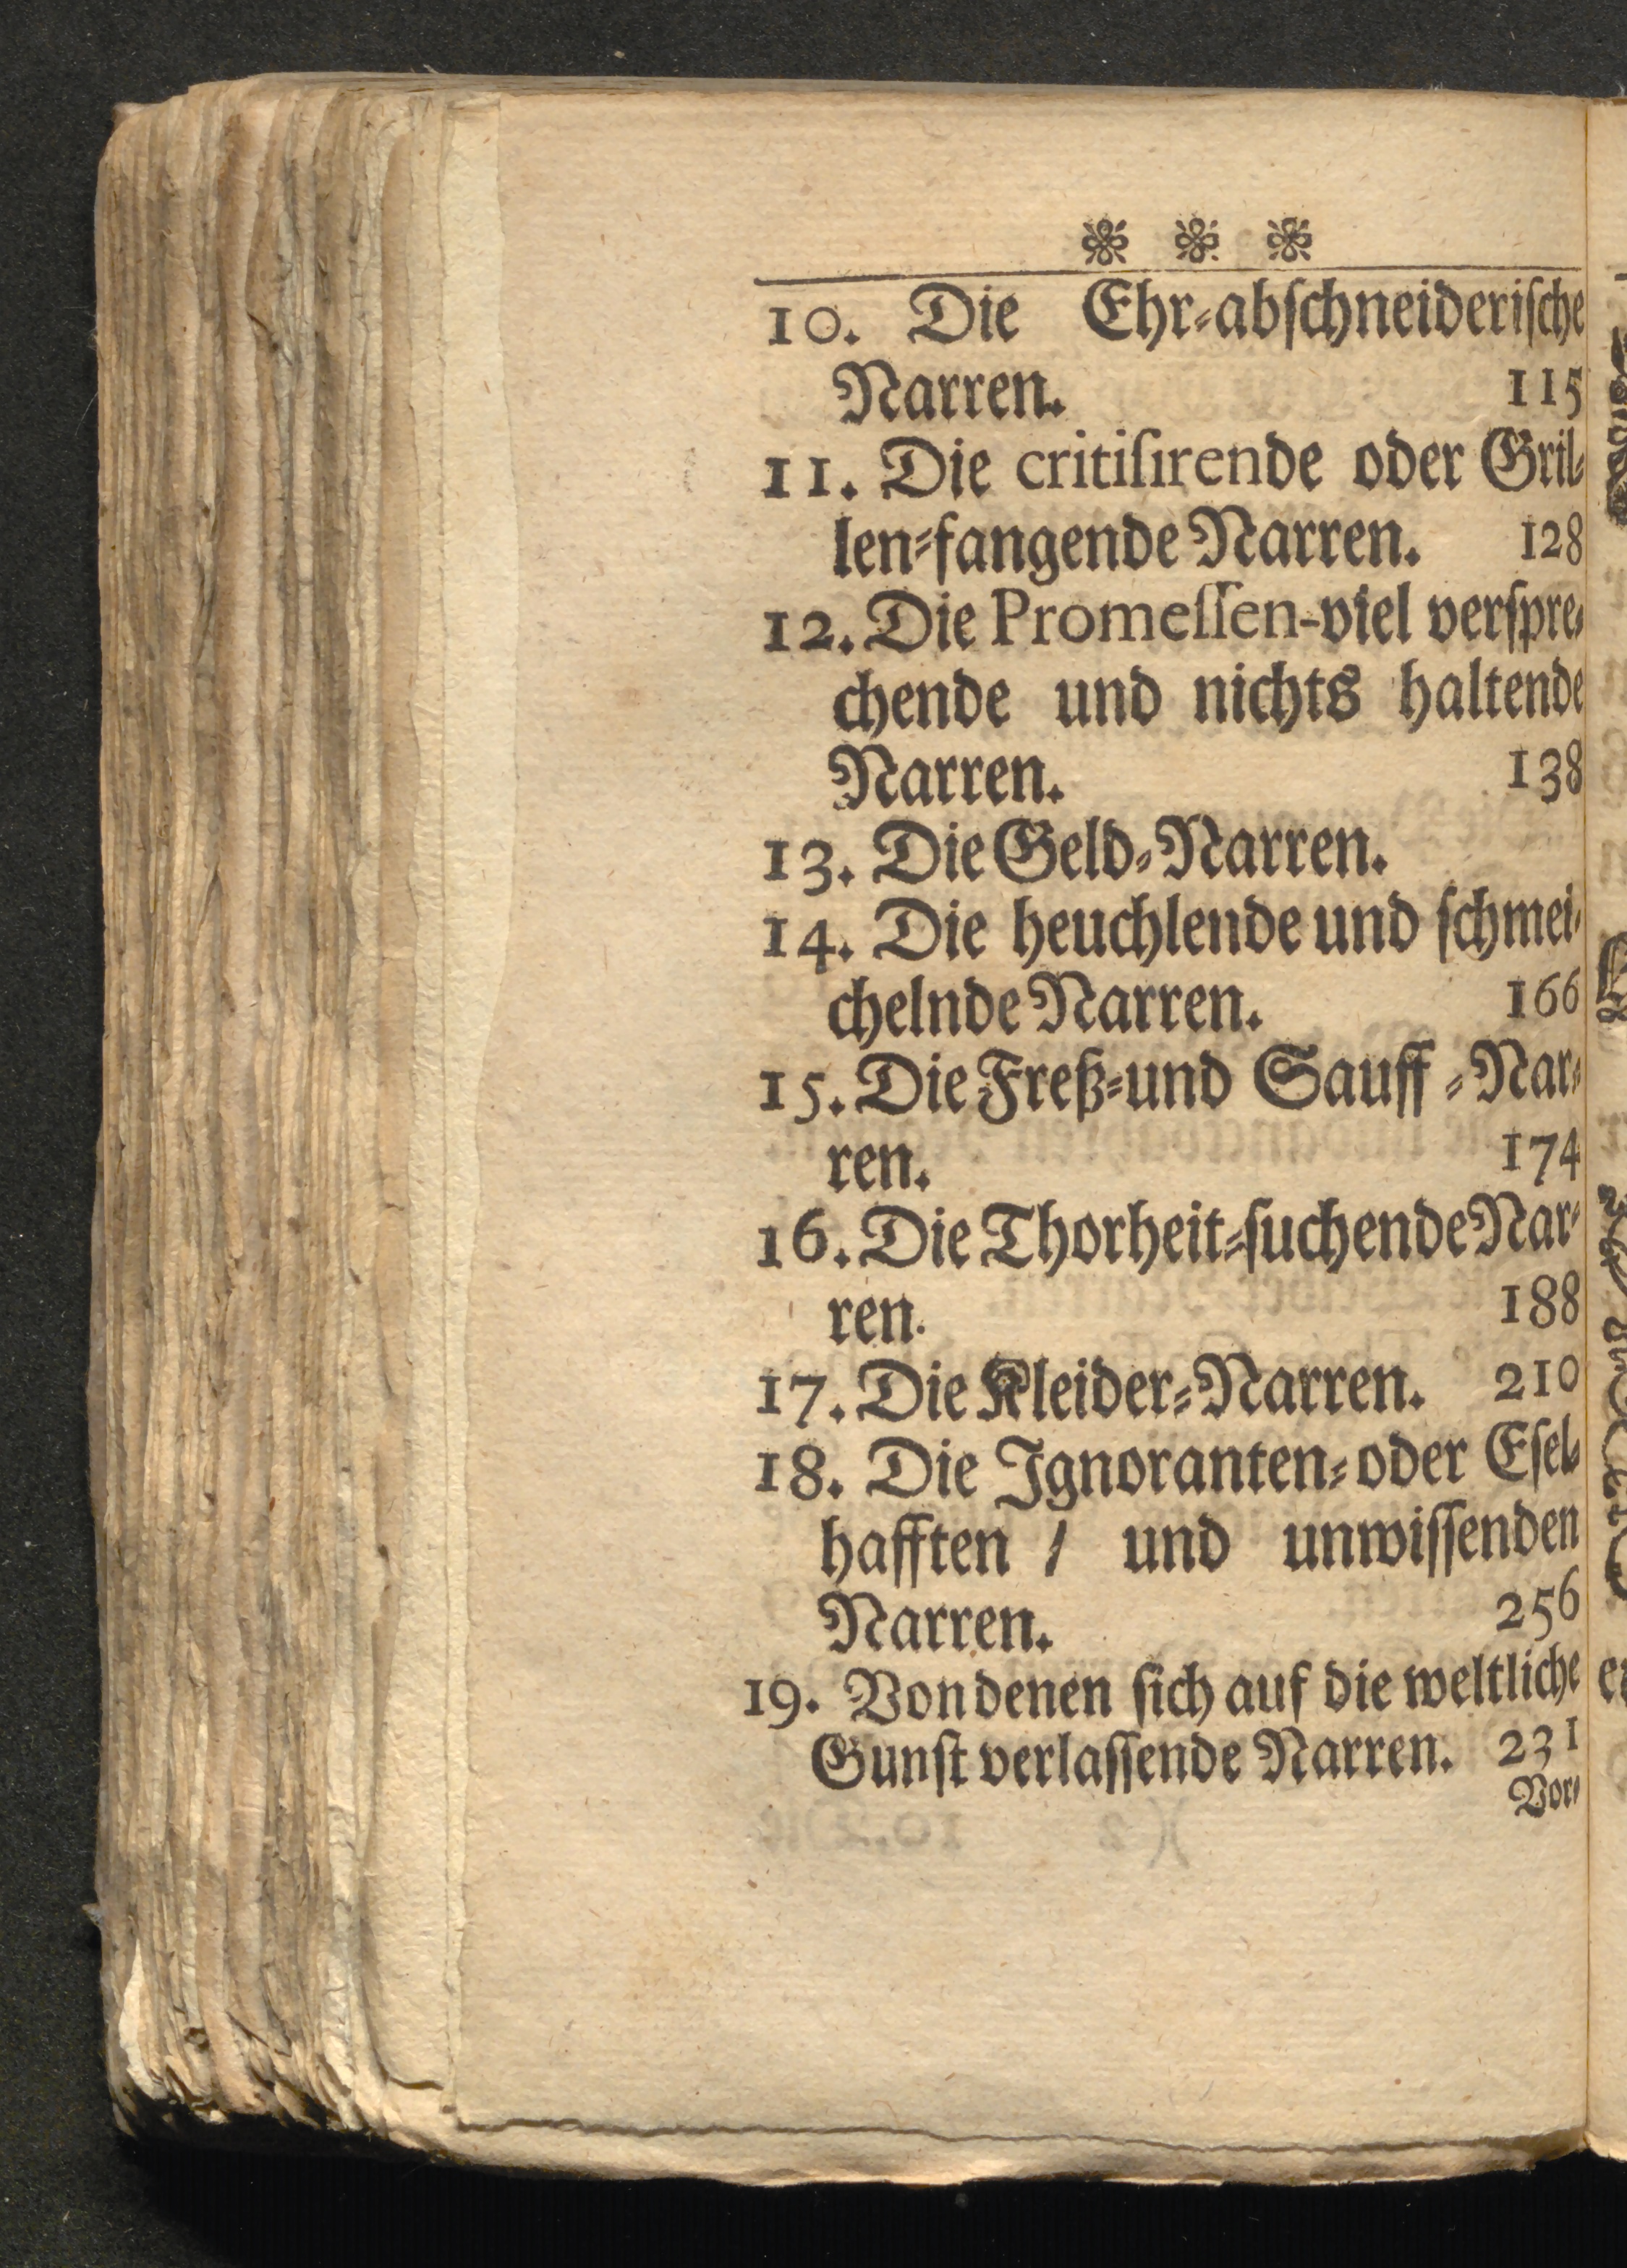 10. Die Ehr-abſchneideriſche
Narren. 115
11. Die critiſirende oder Gril-
len-fangende Narren. 128
12. Die Promeſſen-viel verſpre-
chende und nichts haltende
Narren. 138
13. Die Geld-Narren.
14. Die heuchlende und ſchmei-
chelnde Narren. 166
15. Die Freß-und Sauff-Nar-
ren. 174
16. Die Thorheit-ſuchende Nar-
ren. 188
17. Die Kleider-Narren. 210
18. Die Ignoranten-oder Eſel-
hafften / und unwiſſenden
Narren. 256
19. Von denen ſich auf die weltliche
Gunſt verlaſſende Narren. 231
Vor-